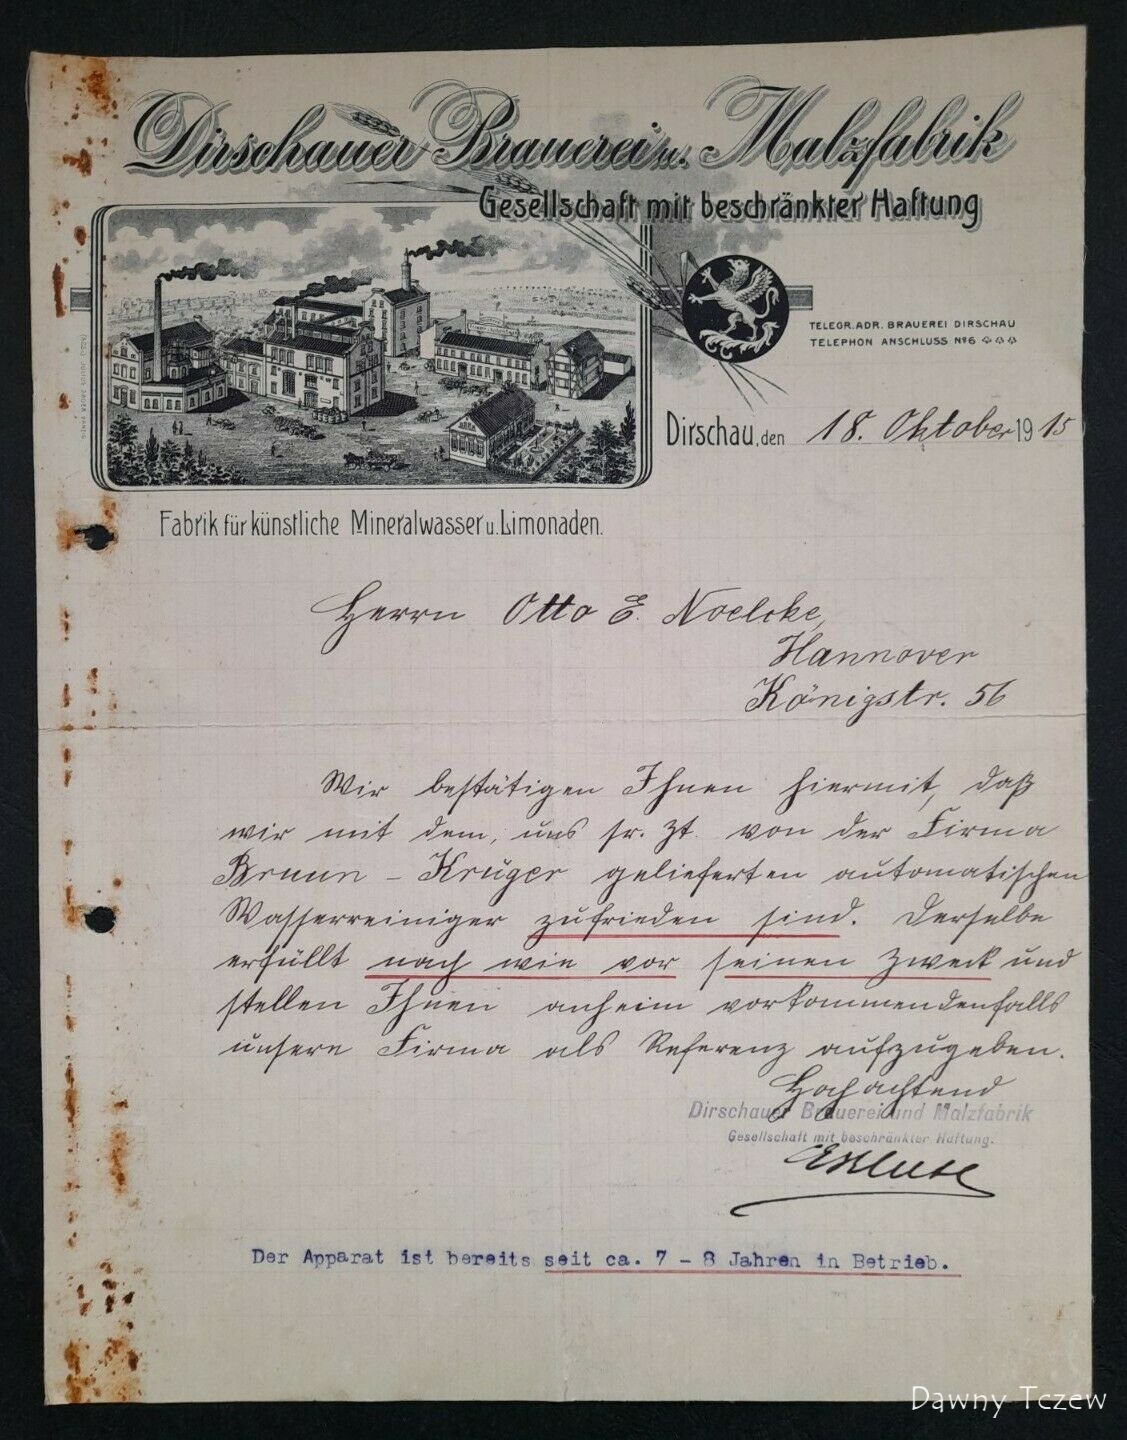 Dirschauer Brauerei u. Malzfabrik
Gesellschaft mit beschränkter Haftung
TELEGR. ADR. BRAUEREI DIRSCHAU
TELEPHON ANSCHLUSS No 6
Dirschau, den 18. Oktober 1915
Fabrik für künstliche Mineralwasser u. Limonaden.
Herrn Otto E. Noelcke,
Hannover
Königstr. 56
Wir bestätigen Ihnen hiermit, daß
wir mit dem, uns sr. Zt. von der Firma
Brunn - Krüger gelieferten automatischen
Wasserreiniger zufrieden sind. Derselbe
erfüllt nach wie vor seinen Zweck und
stellen Ihnen anheim vorkommendenfalls
unsere Firma als Referenz aufzugeben.
Hochachtend
Dirschauer Brauerei und Malzfabrik
Gesellschaft mit beschränkter Haftung.
Der Apparat ist bereits seit ca. 7 - 8 Jahren in Betrieb.
Dawny Tczew